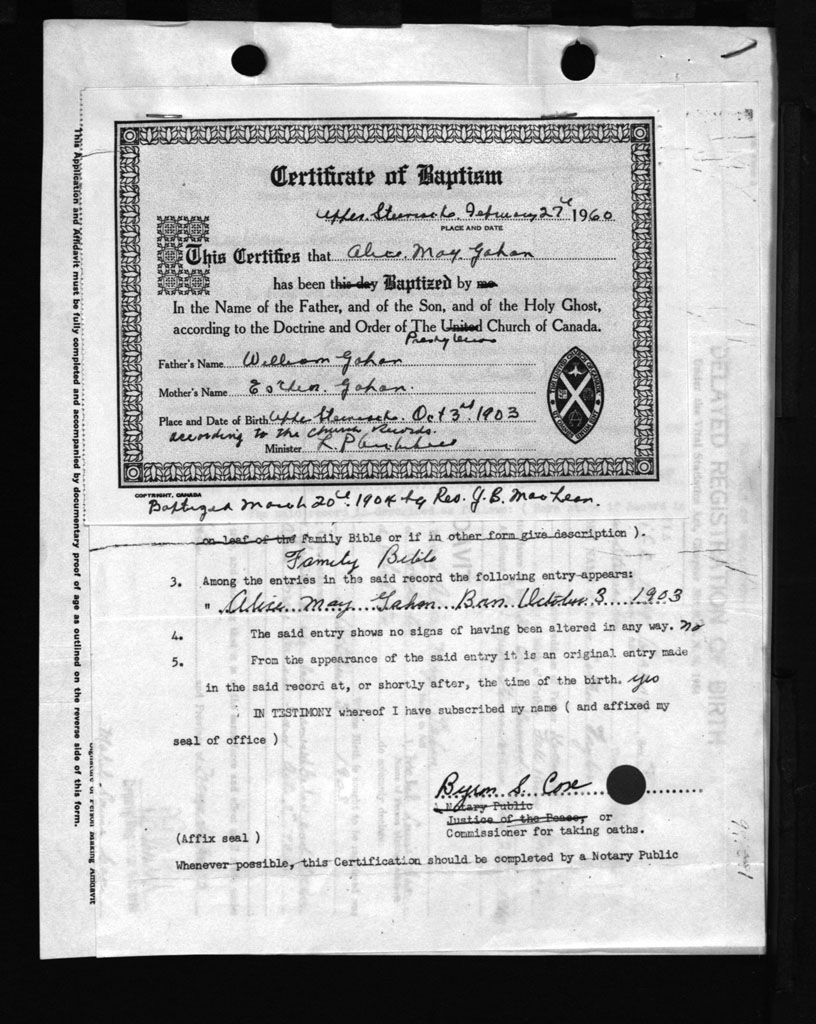 Certificate of Baptism
Upper Stewiacke February 27th 1960
PLACE AND DATE
This Certifies that Alice May Gahan
has been this day Baptized by me
In the Name of the Father, and of the Son, and of the Holy Ghost,
according to the Doctrine and Order of The United Church of Canada.
Presbyterian
Father's Name William Gahan
Mother's Name Esther Gahan.
Place and Date of Birth Upper Stewiacke. Oct 3rd 1903
according to the church records.
Minister
COPYRIGHT, CANADA
Baptized March 20th 1904 by Rev. J. B. MacLean.
on leaf of the Family Bible or if in other form give description ).
Family Bible
3. Among the entries in the said record the following entry appears:
" Alice May Gahan Born October 3 1903
4. The said entry shows no signs of having been altered in any way. no
5. From the appearance of the said entry it is an original entry made
in the said record at, or shortly after, the time of the birth. yes
IN TESTIMONY whereof I have subscribed my name ( and affixed my
seal of office )
Byron S. Cox
A Notary Public
Justice of the Peace, or
(Affix seal ) Commissioner for taking oaths.
Whenever possible, this Certification should be completed by a Notary Public
This Application and Affidavit must be fully completed and accompanied by documentary proof of age as outlined on the reverse side of this form.
Signature of Person Making Affidavit
DELAYED REGISTRATION OF BIRTH